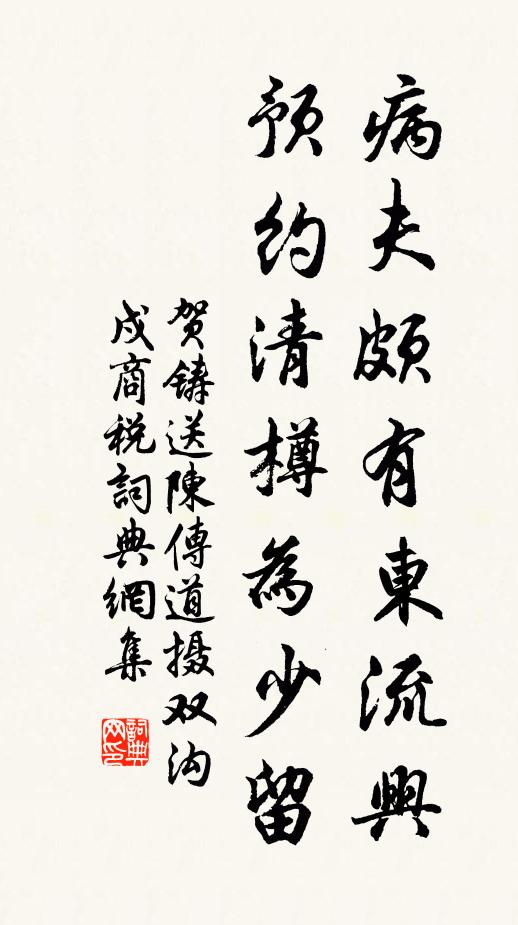 病夫頗有東流興
預约清樽為少留
贺鑄送陳傳道摄双沟
戍商税詞典網集
詞典网印